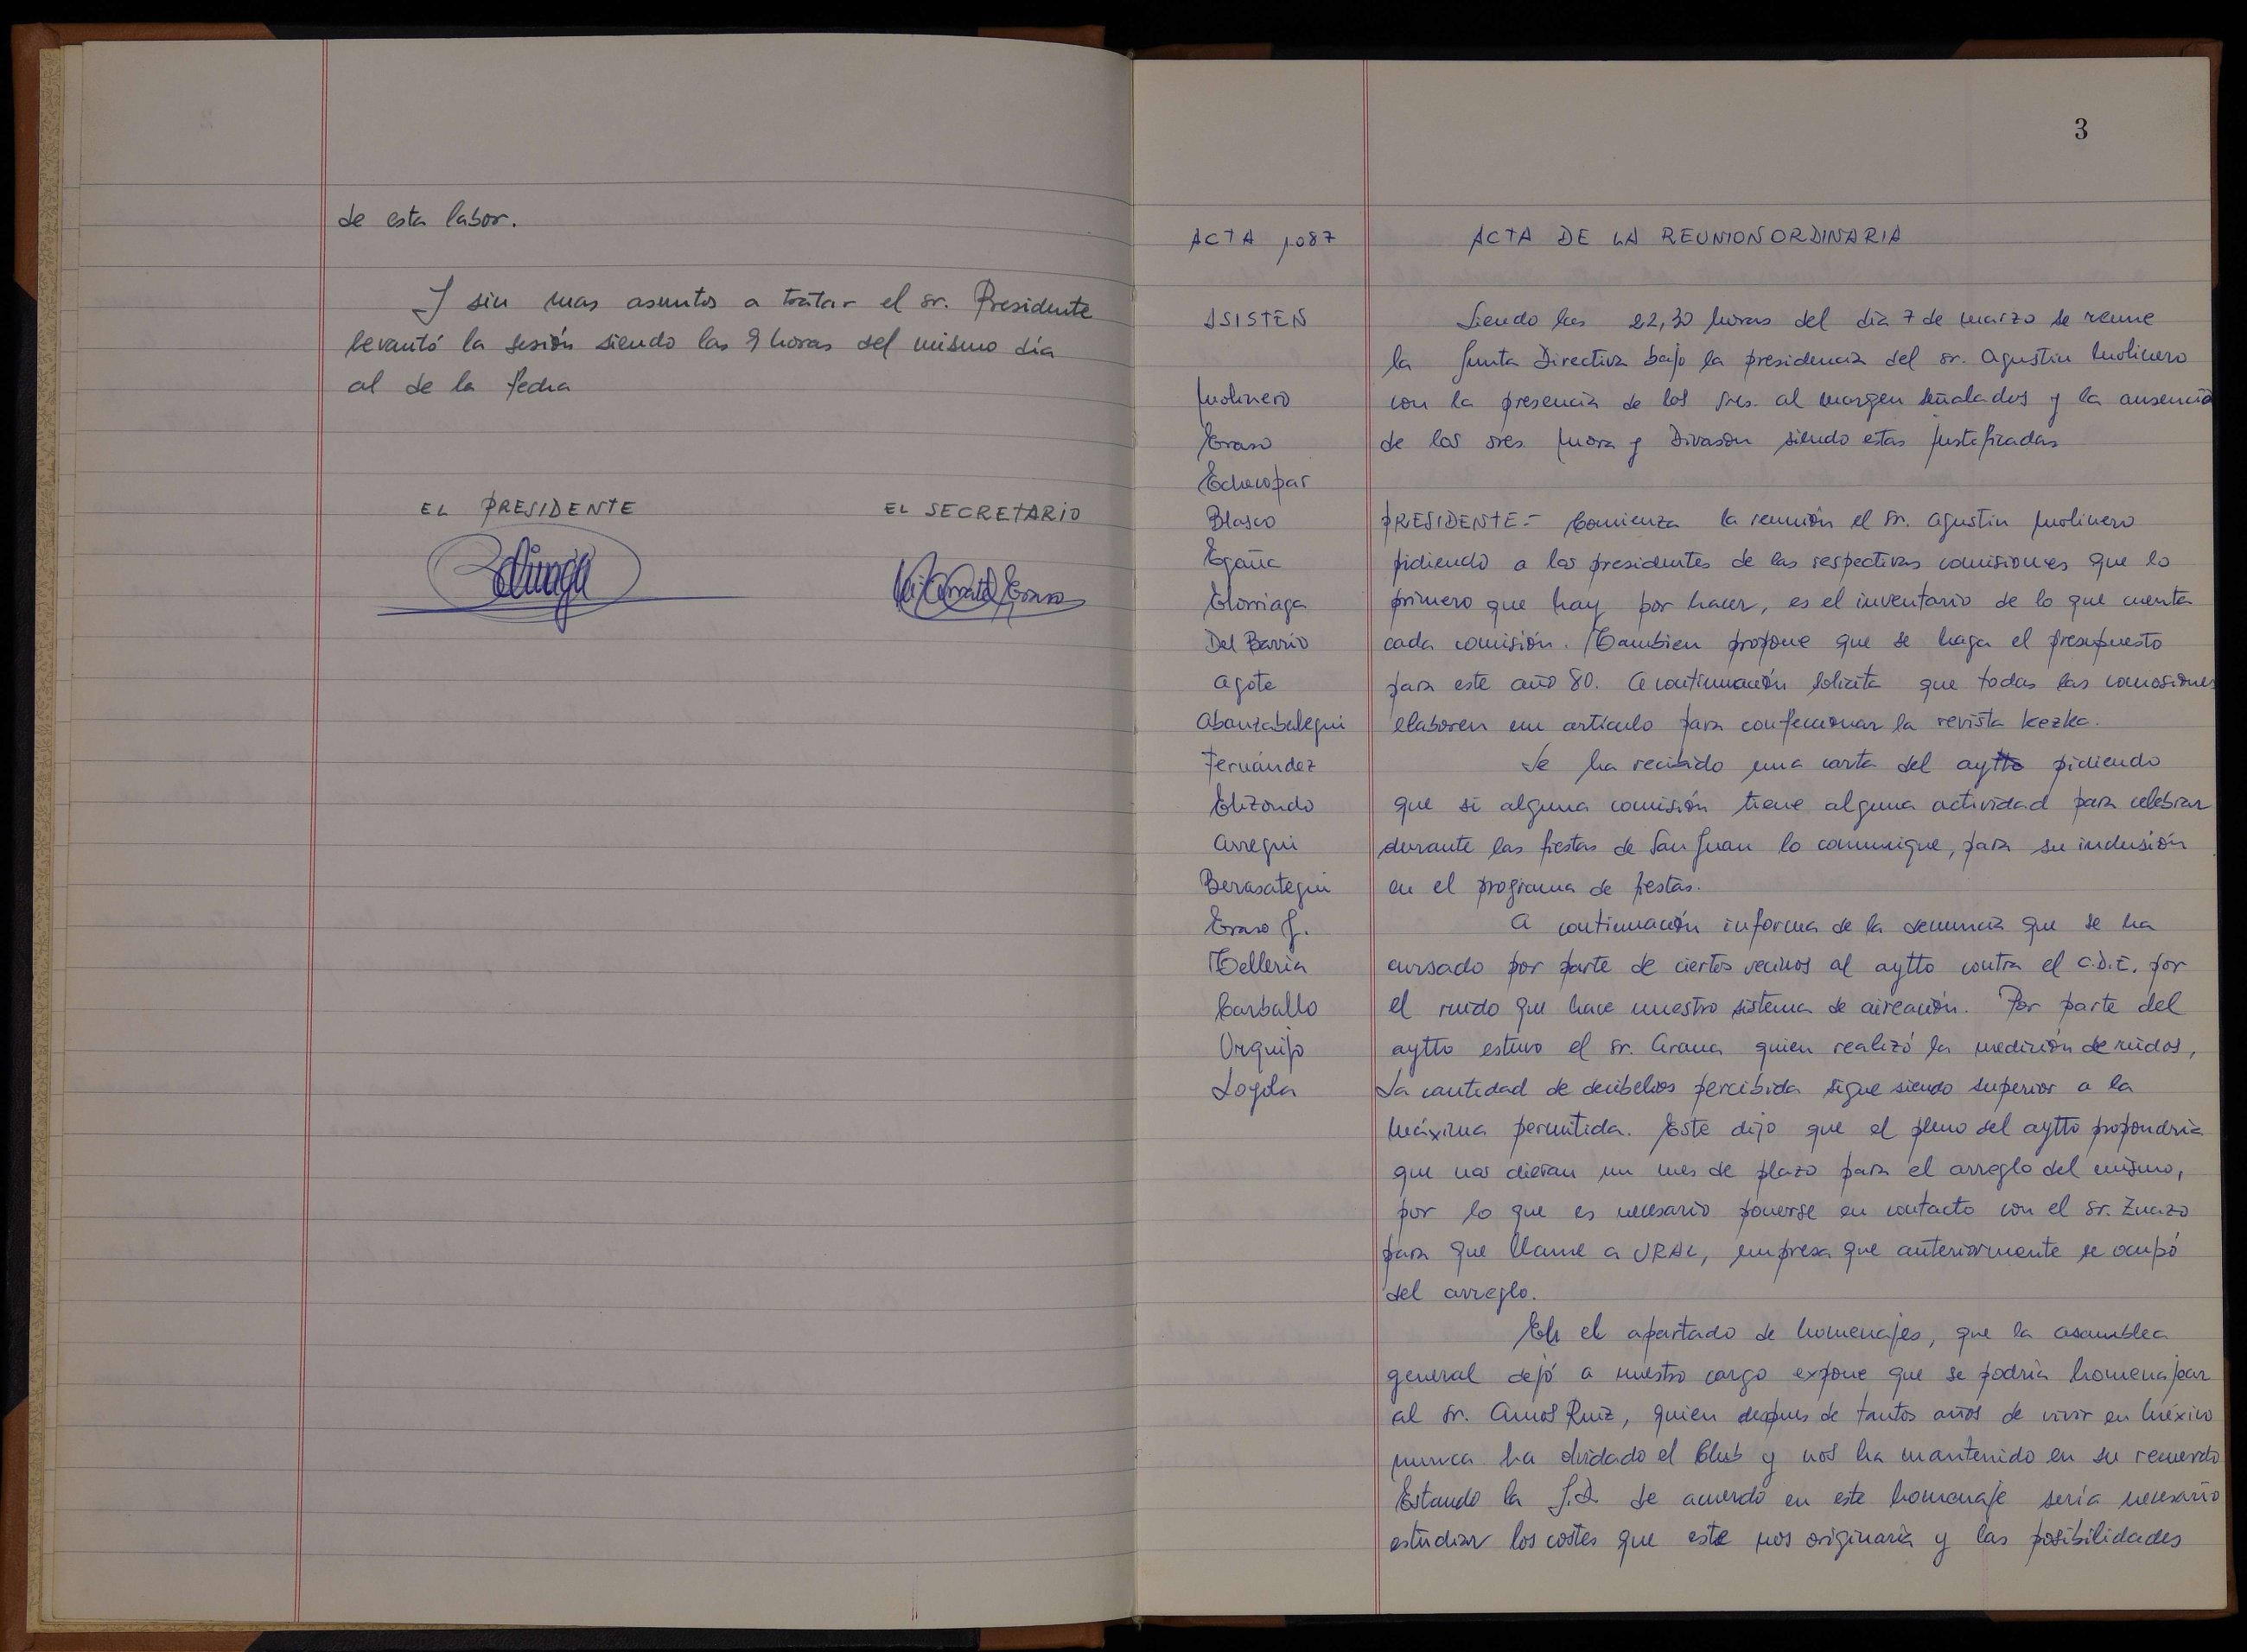 de esta labor.
Y sin mas asuntos a tratar el sr. Presidente
levantó la sesión siendo las 9 horas del mismo día
al de la fecha
EL PRESIDENTE
EL SECRETARIO
3
ACTA 1087
ASISTEN
Molinero
Eraso
Echecopar
Blasco
Egaña
Elorriaga
Del Barrio
Agote
Abanzabalegui
Fernández
Elizondo
Arregui
Berasategui
Eraso J.
Telleria
Carballo
Urquijo
Loyola
ACTA DE LA REUNION ORDINARIA
Siendo las 22,30 horas del día 7 de marzo se reune
la Junta Directiva bajo la presidencia del sr. Agustin Molinero
con la presencia de los sres. al margen señalados y la ausencia
de los sres. Mora y Divason siendo estas justificadas
PRESIDENTE.- Comienza la reunión el Sr. Agustin Molinero
pidiendo a los presidentes de las respectivas comisiones que lo
primero que hay por hacer, es el inventario de lo que cuenta
cada comisión. Tambien propone que se haga el presupuesto
para este año 80. A continuación solicita que todas las comosiones
elaboren un artículo para confeccionar la revista Kezka.
Se ha recibido una carta del aytto pidiendo
que si alguna comisión tiene alguna actividad para celebrar
durante las fiestas de San Juan lo comunique, para su inclusión
en el programa de fiestas.
A continuación informa de la denuncia que se ha
cursado por parte de ciertos vecinos al aytto contra el C.D.E. por
el ruido que hace nuestro sistema de aireación. Por parte del
aytto estuvo el sr. Arana quien realizó la medición de ruidos,
La cantidad de decibelios percibida sigue siendo superior a la
máxima permitida. Este dijo que el pleno del aytto propondria
que nos dieran un mes de plazo para el arreglo del mismo,
por lo que es necesario ponerse en contacto con el Sr. Zuazo
para que llame a URAL, empresa que anteriormente se ocupó
del arreglo.
En el apartado de homenajes, que la asamblea
general dejó a nuestro cargo expone que se podría homenajear
al Sr. Amos Ruiz, quien despues de tantos años de vivir en México
nunca ha olvidado el Club y nos ha mantenido en su recuerdo
Estando la J.D. de acuerdo en este homenaje sería necesario
estudiar los costes que este nos originaría y las posibilidades